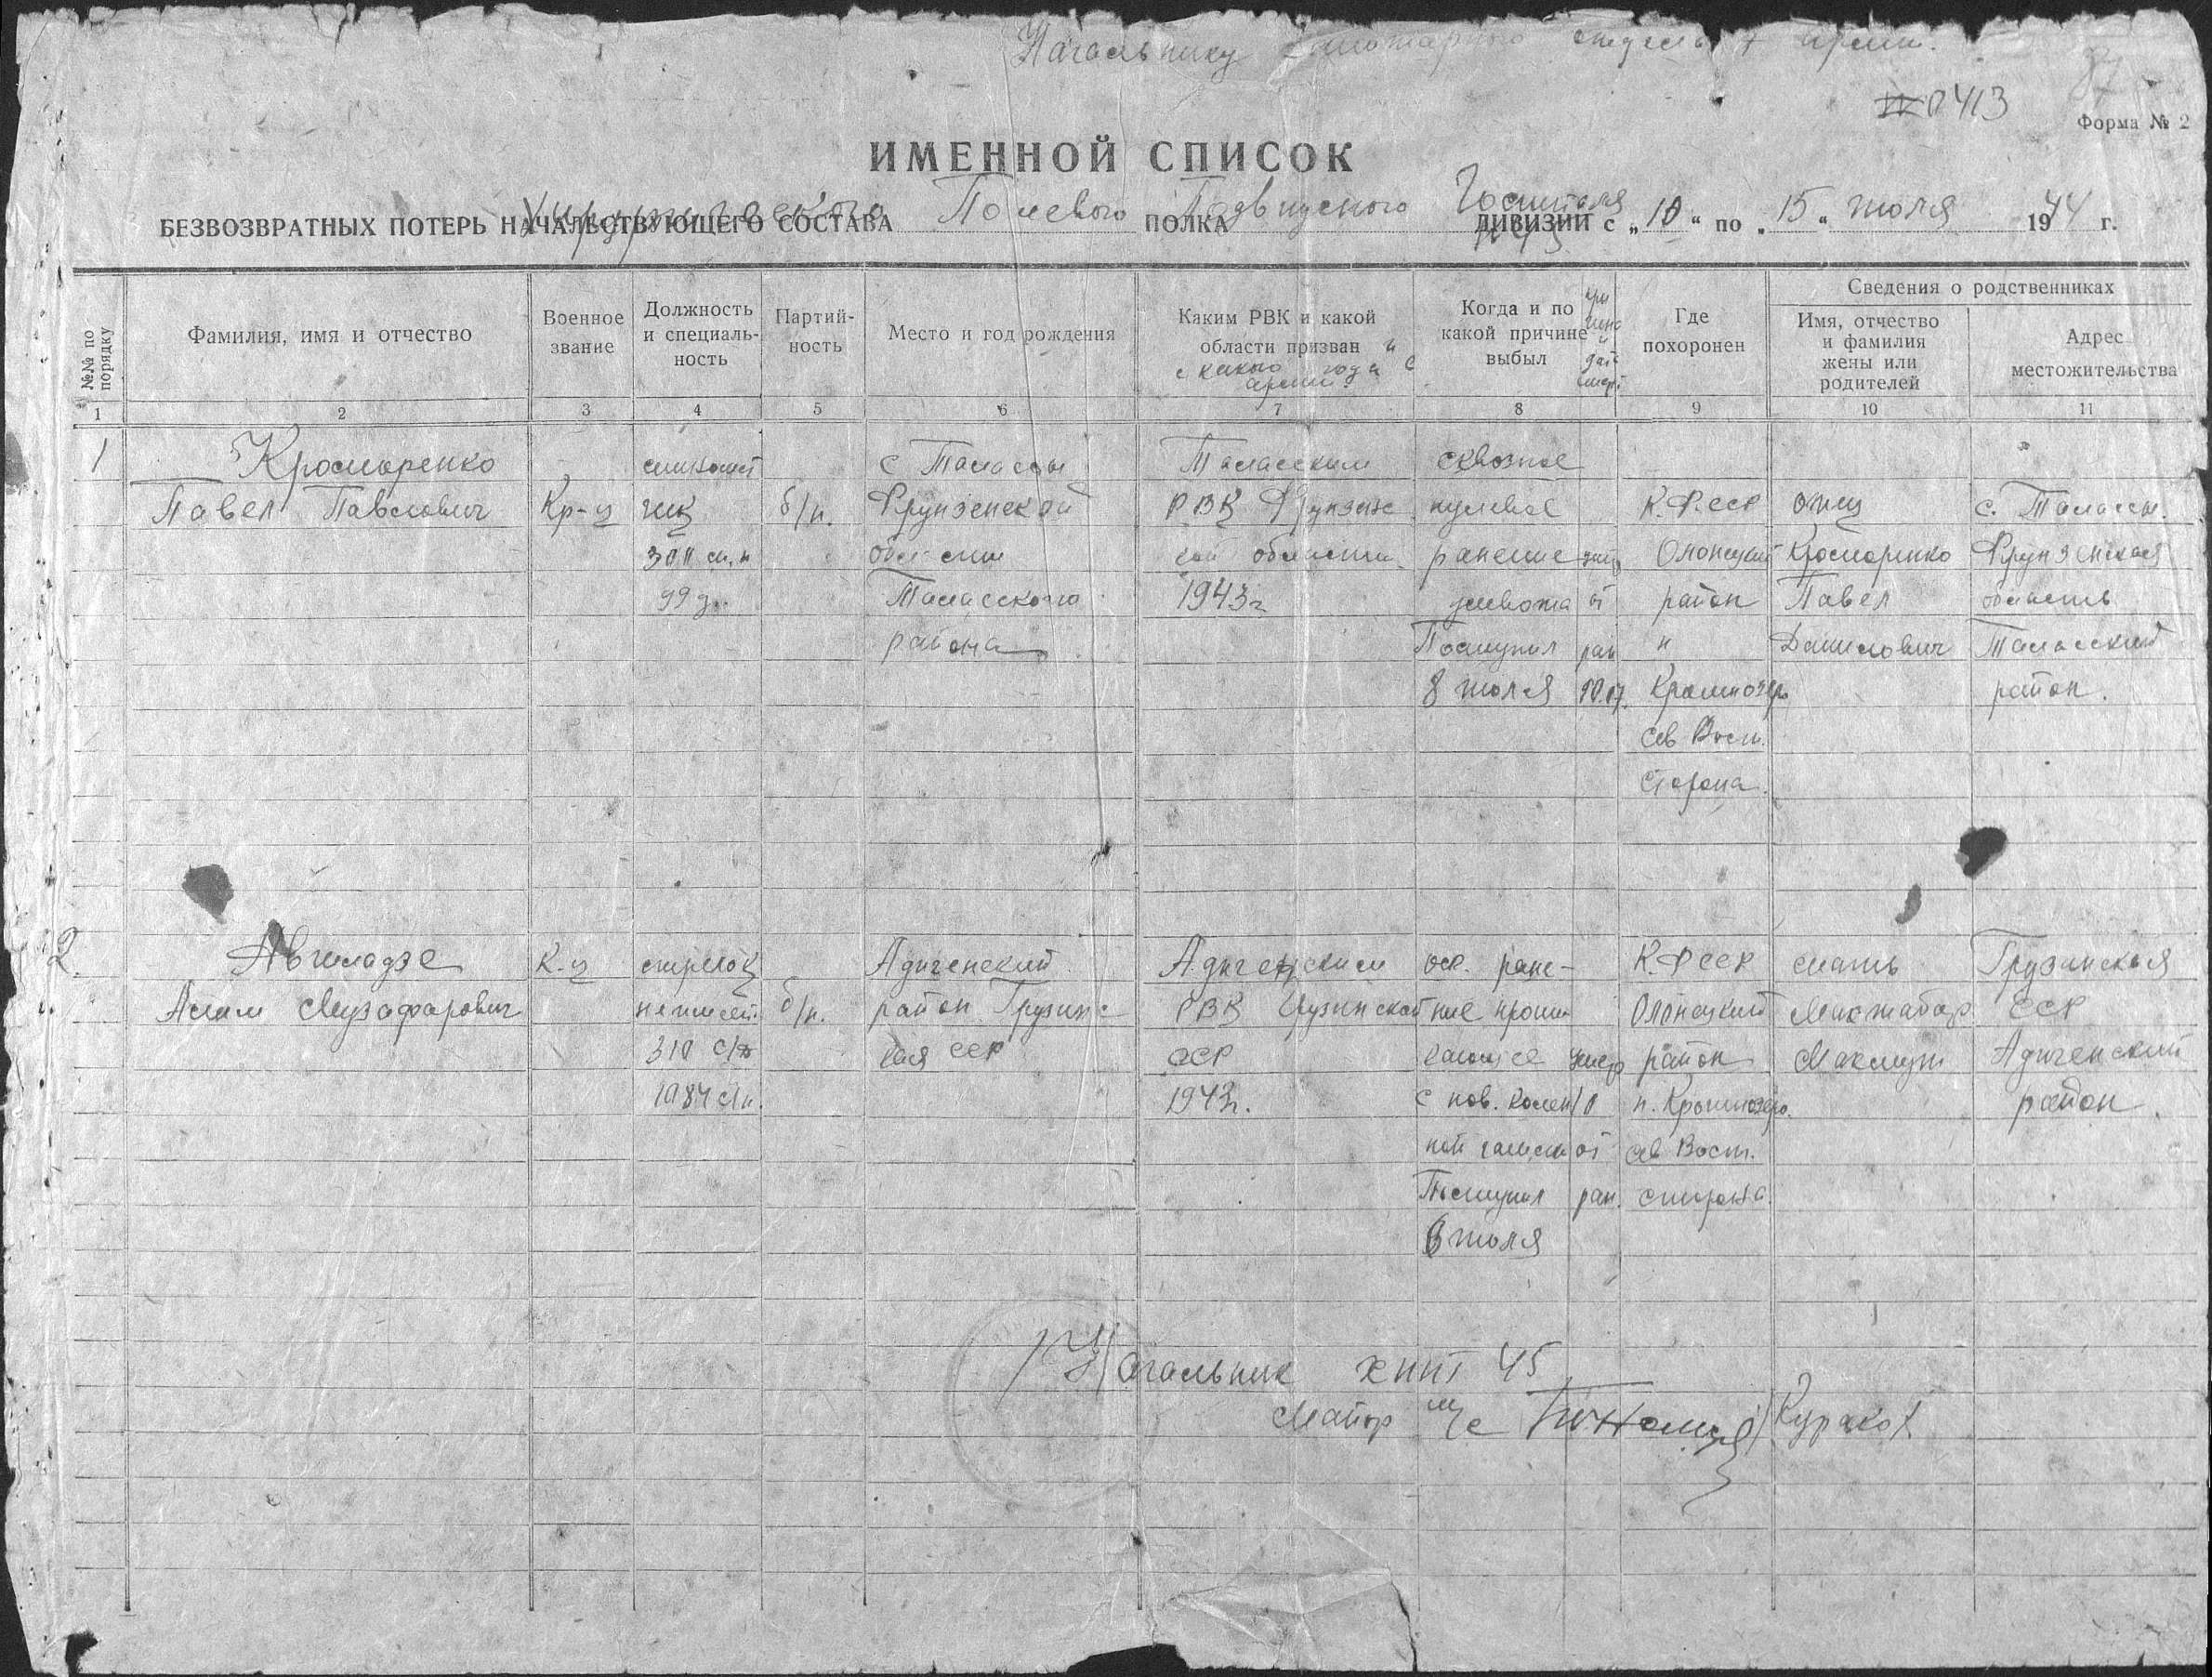 Начальнику санитарного отдела 7 армии.
87
№ 0413
Форма № 2
ИМЕННОЙ СПИСОК
Хирургического Полевого Подвижного Госпиталя
БЕЗВОЗВРАТНЫХ ПОТЕРЬ НАЧАЛЬСТВУЮЩЕГО СОСТАВА ПОЛКА ДИВИЗИИ с „10“ по „15“ июля 1944 г.
№№ по порядку
Фамилия, имя и отчество
Военное звание
Должность и специальность
Партийность
Место и год рождения
Каким РВК и какой области призван и
с какого года с
армии
Когда и по какой причине выбыл
Где похоронен
Сведения о родственниках
Имя, отчество и фамилия жены или родителей
Адрес местожительства
1 2 3 4 5 6 7 8 9 10 11
1 Кромаренко с Талассы Таласским сквозное
Павел Павлович Кр-ц чик б/п. Фрунзенской РВК Фрунзенс пулевое К.Ф.ССР отец с. Талассы.
области кой области ранение Олонецкий Кромаренко Фрунзенская
99 д. Таласского 1943г живота от район Павел область
района Поступил ран н Данилович Таласский
8 июля 10.07. Крошнозеро район.
сев Вост.
сторона.
2. Авгиладзе К-ц стрелок Адигенский Адигенским оск. ране- К.Ф ССР мать Грузинская
Аслам Музафарович б/п. район Грузинс- РВК Грузинской ние прони- Олонецкий ССР
310 с/д кая ССР ССР кающее умер район Махмут Адигенский
1084 с/п. 1943г. с пов. колен/о н. Крошнозеро. район.
от сев Вост.
Поступил ран. сторона.
8 июля
Начальник ХППГ 45
Майор м/с Кураков